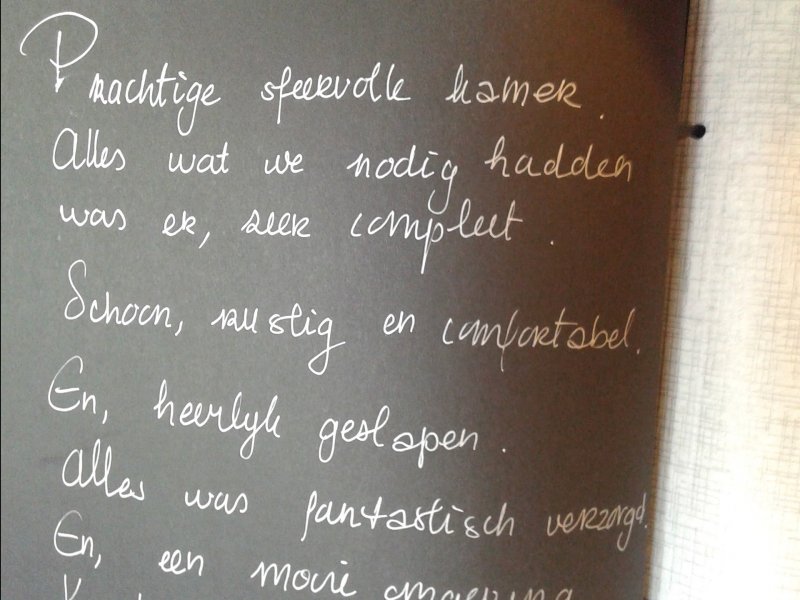 Prachtige sfeervolle kamer.
Alles wat we nodig hadden
was er, zeer compleet.
Schoon, rustig en comfortabel.
En, heerlyk geslapen.
Alles was fantastisch verzorgd.
En, een mooie omgeving